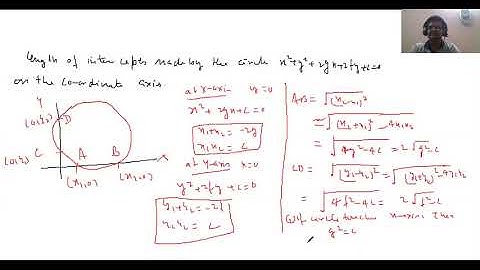 length of intercepts made by the circle x²+y²+2gx+2fy+c=0
on the co-ordinate axis.
Y
(0,y₂) D
(0,y₁) C
A B X
(x₁,0) (x₂,0)
at x-axis y=0
x²+2gx+c=0
x₁+x₂ = -2g
x₁x₂ = c
at y-axis x=0
y²+2fy+c=0
y₁+y₂ = -2f
y₁y₂ = c
AB = √(x₂-x₁)²
= √(x₂+x₁)²-4x₁x₂
= √4g²-4c = 2√g²-c
CD = √(y₁-y₂)² = √(y₁+y₂)²-4y₁y₂
= √4f²-4c = 2√f²-c
If circle touches x-axis then
g²=c